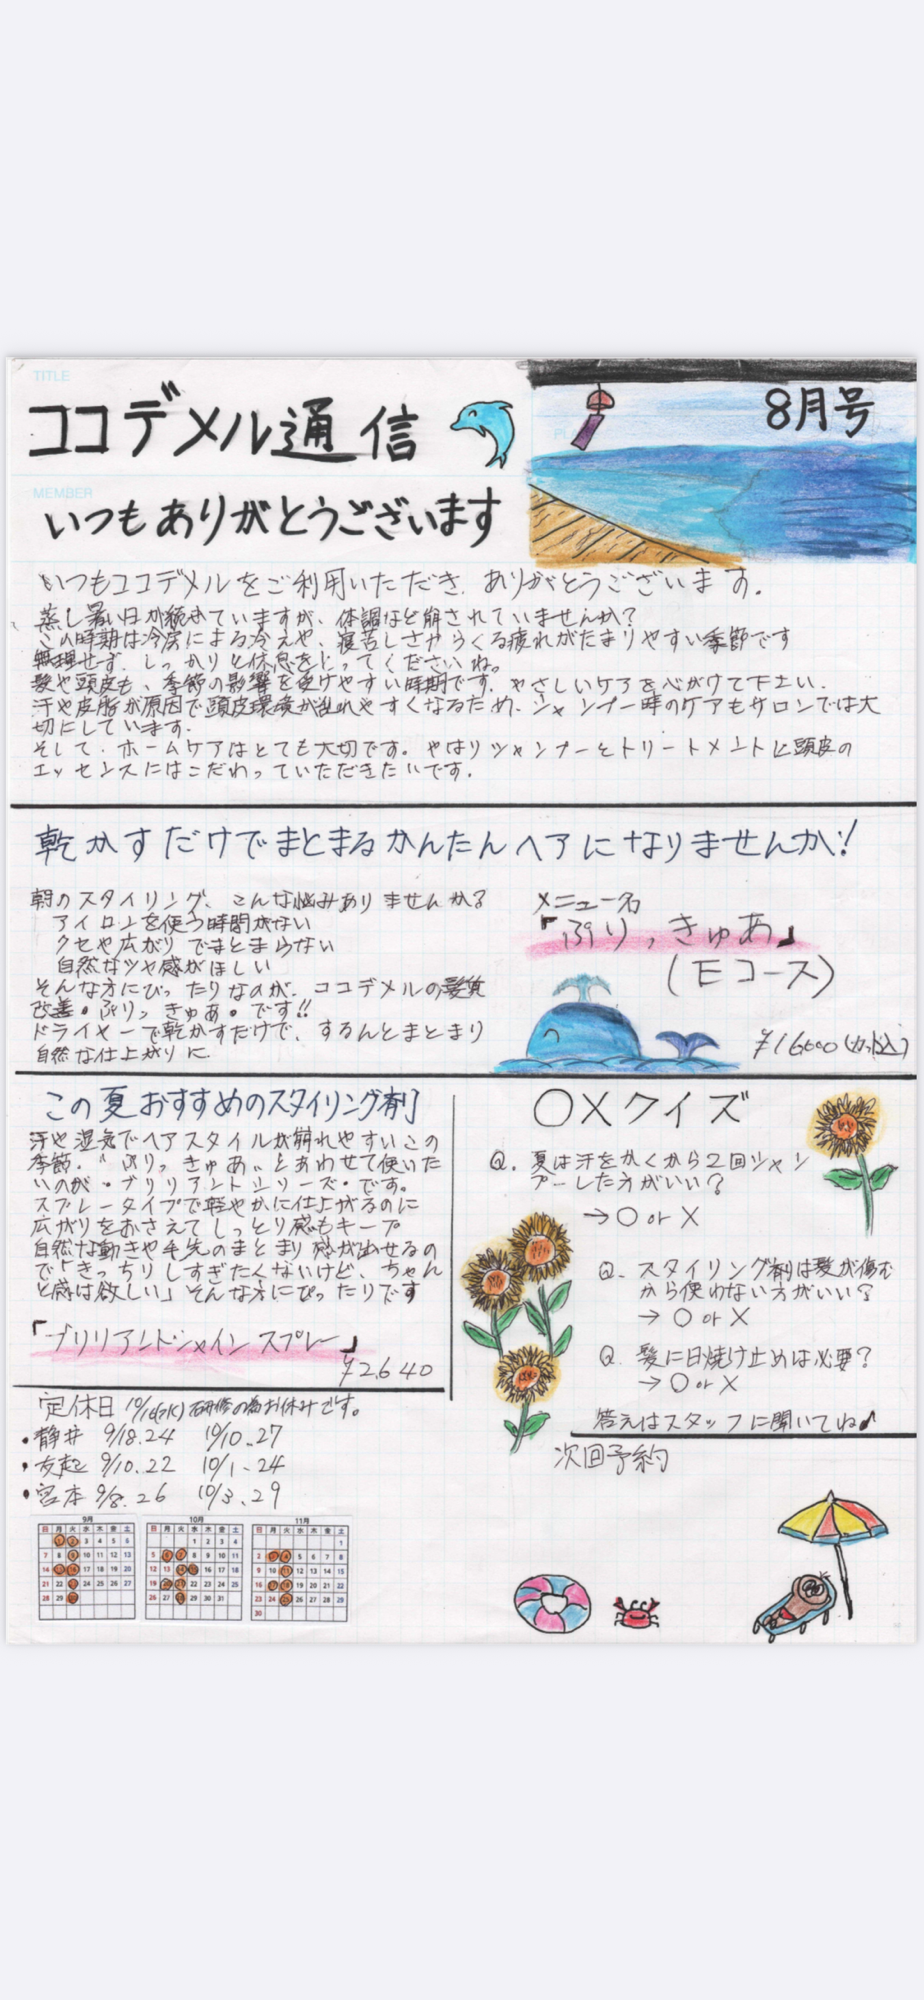 TITLE
ココデメル通信
8月号
MEMBER
いつもありがとうございます
いつもココデメルをご利用いただき、ありがとうございます。
蒸し暑い日が続いていますが、体調など崩されていませんか?
この時期は冷房による冷えや、寝苦しさからくる疲れがたまりやすい季節です
無理せず、しっかりと休息をとってくださいね。
髪や頭皮も、季節の影響を受けやすい時期です。やさしいケアを心がけて下さい。
汗や皮脂が原因で頭皮環境が乱れやすくなるため、シャンプー時のケアもサロンでは大
切にしています。
そして、ホームケアはとても大切です。やはりシャンプーとトリートメントと頭皮の
エッセンスにはこだわっていただきたいです。
乾かすだけでまとまるかんたんヘアになりませんか!
朝のスタイリング、こんな悩みありませんか?
アイロンを使う時間がない
クセや広がりでまとまらない
自然なツヤ感がほしい
そんな方にぴったりなのが、ココデメルの髪質
改善・ぷりっきゅあ・です!!
ドライヤーで乾かすだけで、するんとまとまり
自然な仕上がりに
メニュー名
「ぷりっきゅあ」
(Eコース)
¥16000(カット込)
この夏おすすめのスタイリング剤
汗や湿気でヘアスタイルが崩れやすいこの
季節。〝ぷりっきゅあ〟とあわせて使いた
いのが・ブリリアントシリーズ・です。
スプレータイプで軽やかに仕上がるのに
広がりをおさえてしっとり感もキープ
自然な動きや毛先のまとまり感が出せるの
で「きっちりしすぎたくないけど、ちゃん
と感は欲しい」そんな方にぴったりです
「ブリリアントシャインスプレー」
¥2640
○×クイズ
Q. 夏は汗をかくから2回シャン
プーした方がいい?
→○ or ×
Q. スタイリング剤は髪が傷む
から使わない方がいい?
→ ○ or ×
Q. 髪に日焼け止めは必要?
→○ or ×
答えはスタッフに聞いてね♪
定休日 10/16(木)研修の為お休みです。
・静井 9/18.24 10/10.27
・友起 9/10.22 10/1.24
・宮本 9/8.26 10/3.29
次回予約
9月
日 月 火 水 木 金 土
1 2 3 4 5 6
7 8 9 10 11 12 13
14 15 16 17 18 19 20
21 22 23 24 25 26 27
28 29 30
10月
日 月 火 水 木 金 土
1 2 3 4
5 6 7 8 9 10 11
12 13 14 15 16 17 18
19 20 21 22 23 24 25
26 27 28 29 30 31
11月
日 月 火 水 木 金 土
1
2 3 4 5 6 7 8
9 10 11 12 13 14 15
16 17 18 19 20 21 22
23 24 25 26 27 28 29
30